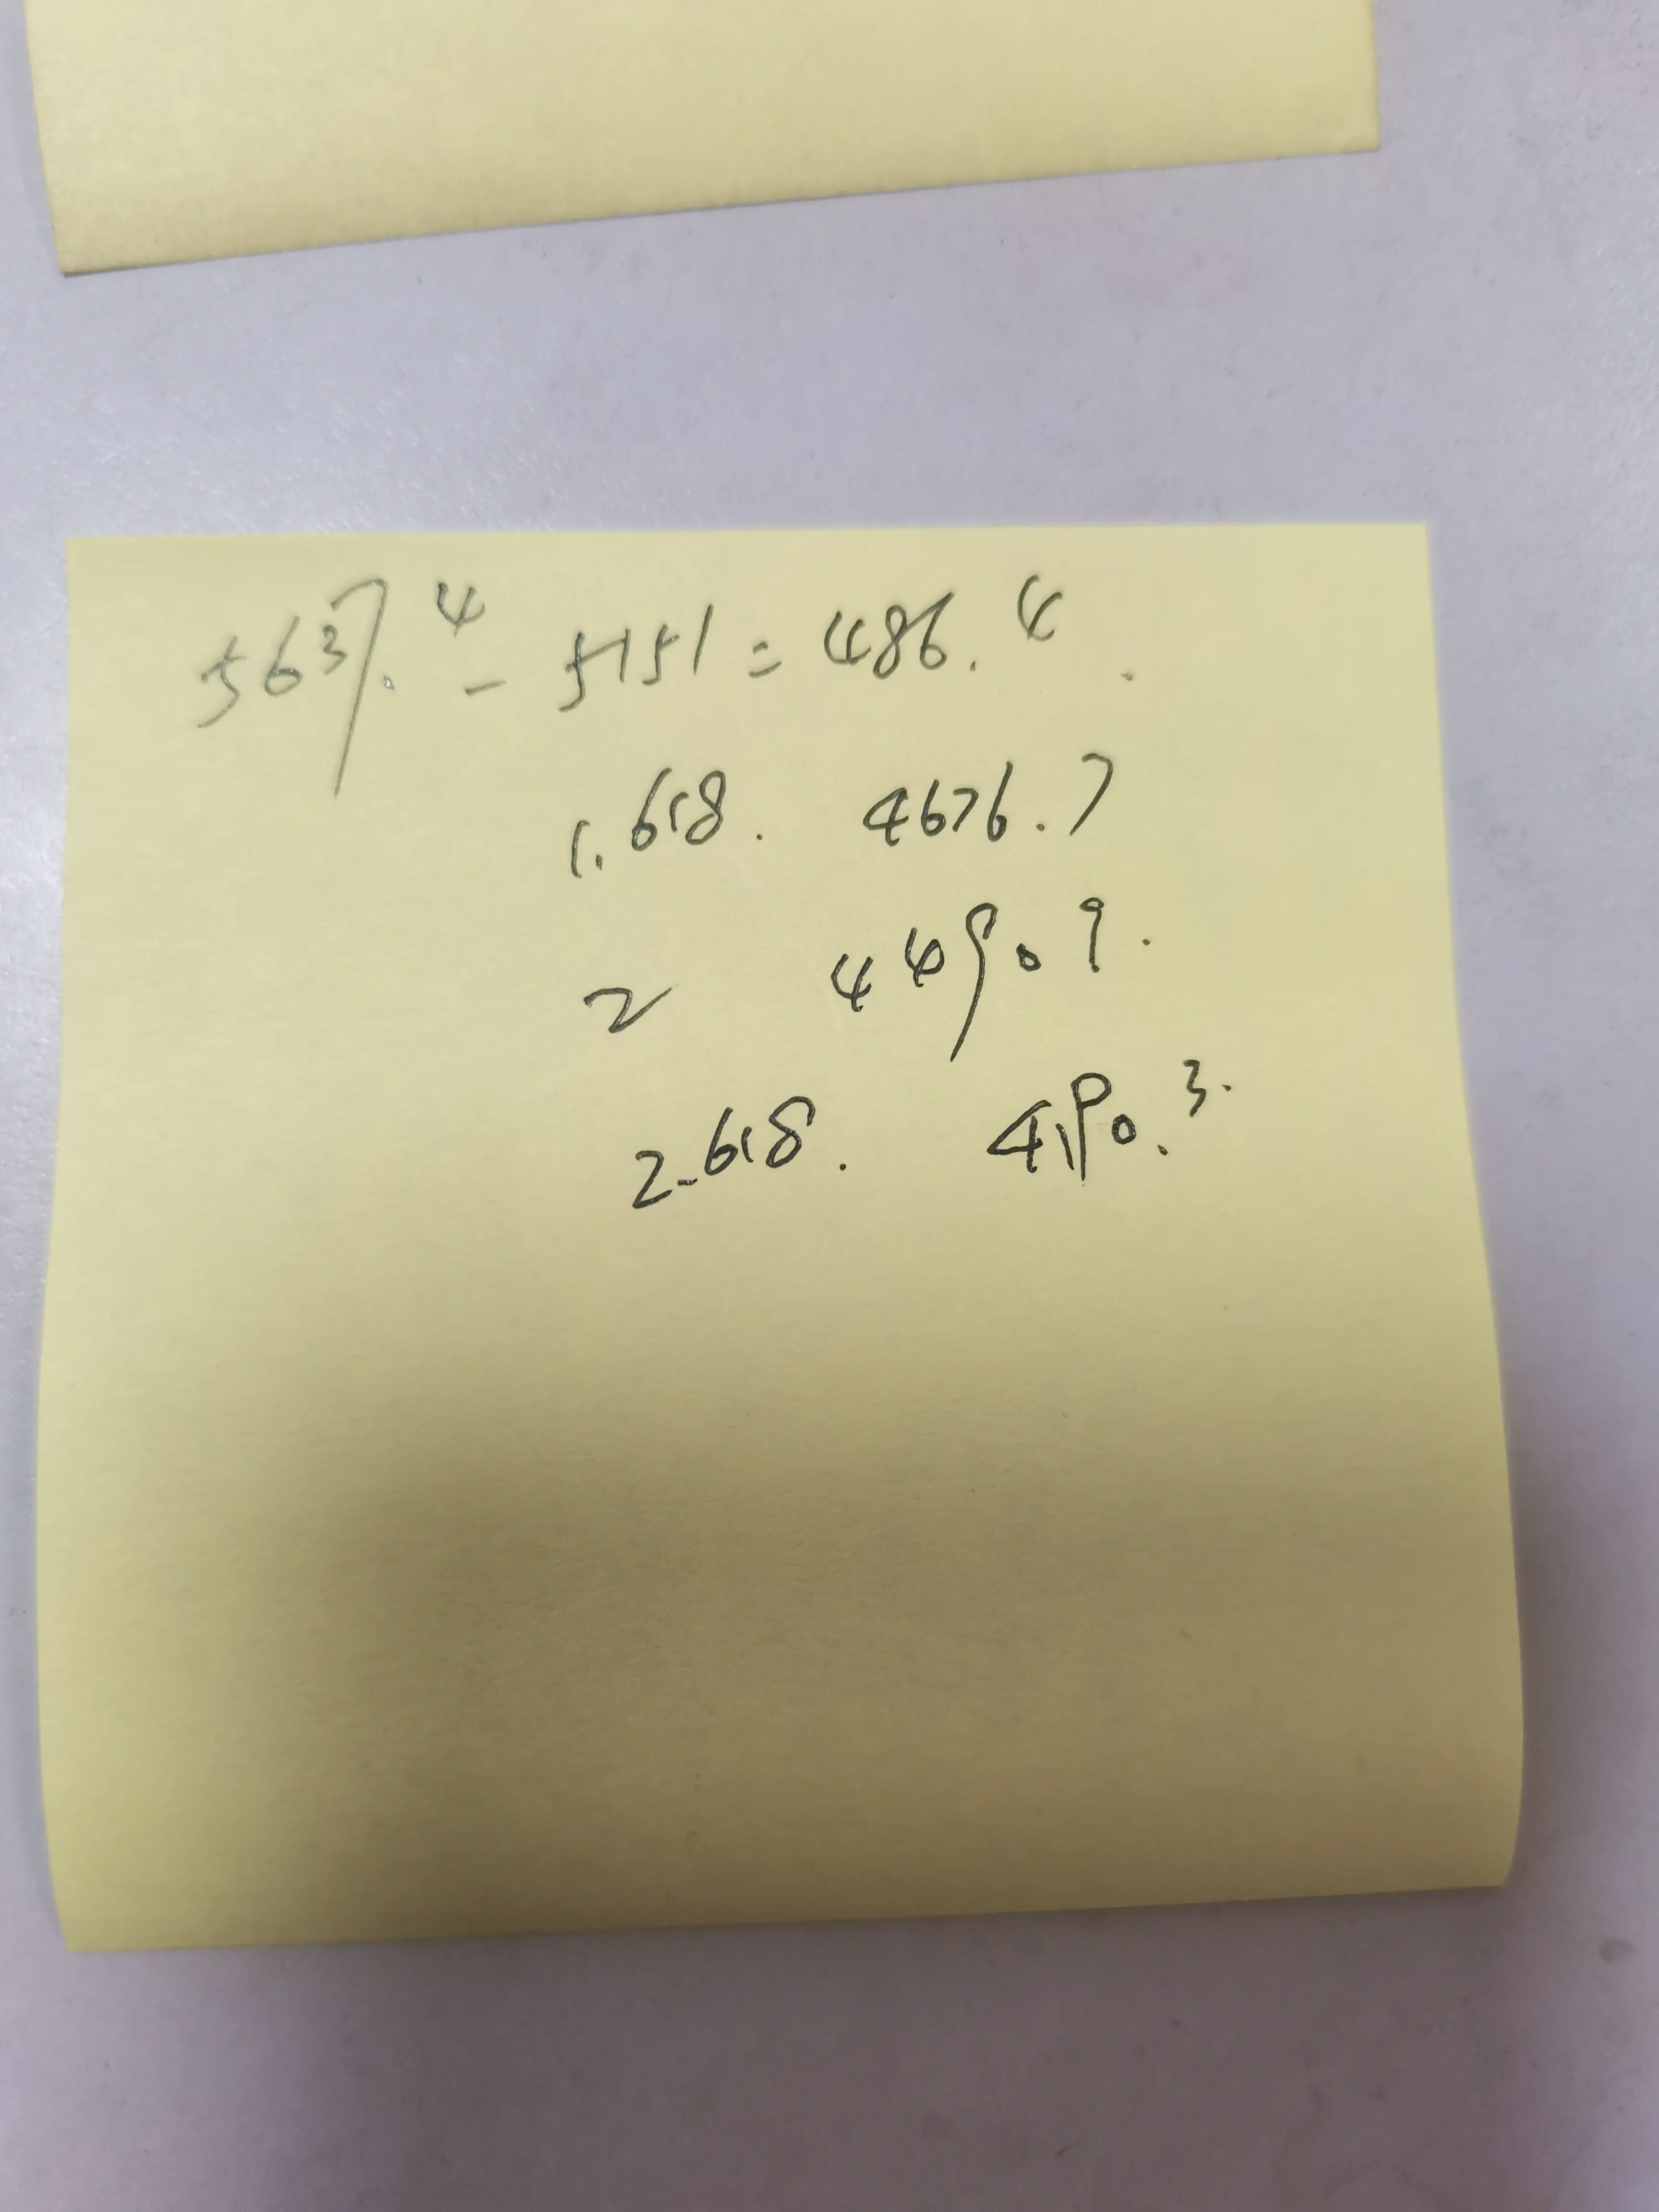 5637.4 - 5151 = 486.4.
1.618. 4676.7
2 4490 9.
2.618. 4190.3.